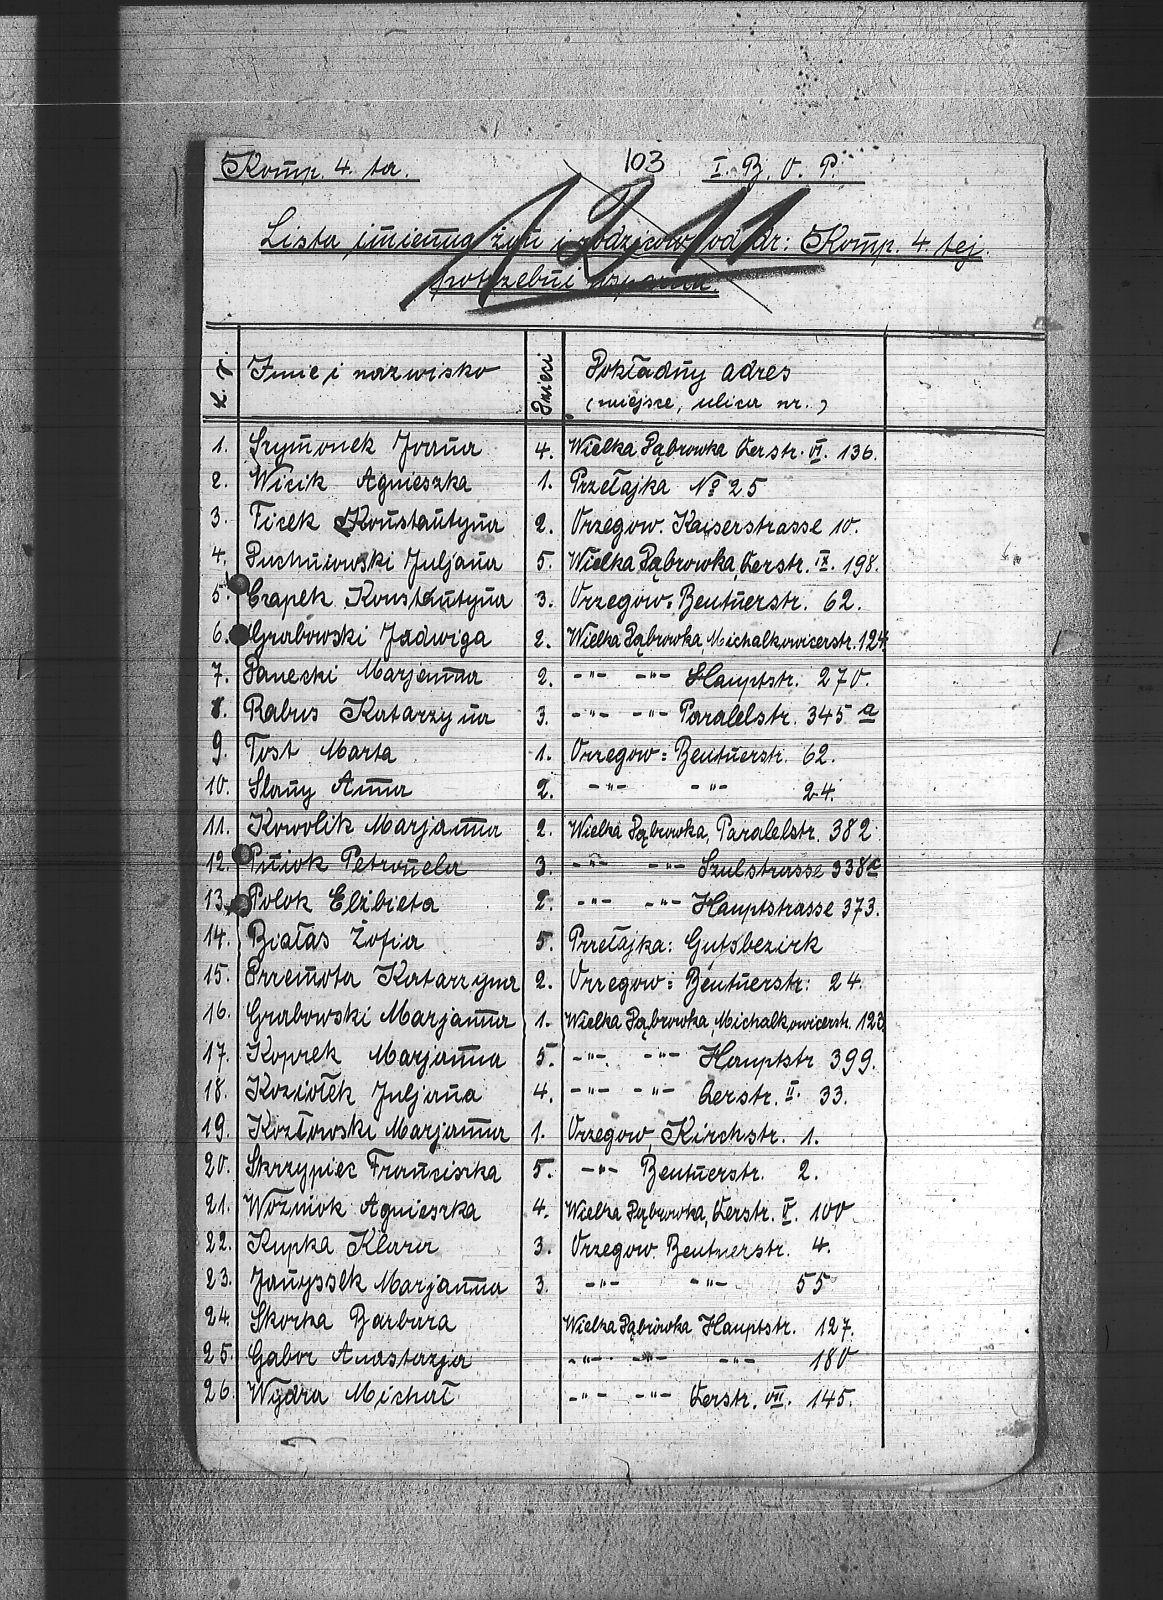 Komp. 4. ta. 103 I. B. O. P.
1211
Lista imienna żon i rodziców od dr: Komp. 4. tej.
potrzebni wsparcia.
L. p. Imie i nazwisko Dzieci Pokładny adres
(miejsce, ulica nr.)
1. Szymonek Joana 4. Wielka Dąbrowka Qerstr. VI. 136.
2. Wicik Agnieszka 1. Przełajka № 25
3. Ticek Konstantyna 2. Orzegow. Kaiserstrasse 10.
4. Puchniowski Juljana 5. Wielka Dąbrowka, Qerstr. IX. 198.
5. Czapek Konstantyna 3. Orzegow: Beutnerstr. 62.
6. Grabowski Jadwiga 2. Wielka Dąbrowka, Michalkowicerstr. 124.
7. Panecki Marjanna 2. -"- -"- Hauptstr. 270.
8. Rabus Katarzyna 3. -"- -"- Paralelstr. 345 a
9. Tost Marta 1. Orzegow: Beutnerstr. 62.
10. Slany Anna 2. -"- -"- 24.
11. Kowolik Marjanna 2. Wielka Dąbrowka, Paralelstr. 382
12. Piniok Petronela 3. -"- -"- Szulstrasse 338c
13. Polok Elżbieta 2. -"- -"- Hauptstrasse 373.
14. Białas Zofia 5. Przełajka: Gutsbezirk
15. Przemota Katarzyna 2. Orzegow: Beutnerstr: 24.
16. Grabowski Marjanna 1. Wielka Dąbrowka, Michalkowicerstr. 123
17. Koprek Marjanna 5. -"- -"- Hauptstr 399.
18. Koziołek Juljana 4. -"- -"- Qerstr. II. 33.
19. Kozłowski Marjanna 1. Orzegow, Kirchstr. 1.
20. Skrzypiec Franciszka 5. -"- Beutnerstr. 2.
21. Woźniok Agnieszka 4. Wielka Dąbrowka, Qerstr. V. 100
22. Kupka Klara 3. Orzegow. Beutnerstr. 4.
23. Janyssek Marjanna 3. -"- -"- 55
24. Skorka Barbara Wielka Dąbrowka Hauptstr. 127.
25. Gabor Anastazja -"- -"- -"- 180
26. Wydra Michał -"- -"- Qerstr. VII. 145.